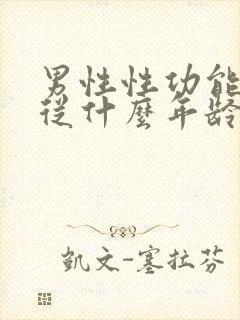 男性性功能
從什麼年齡
凱文-塞拉芬